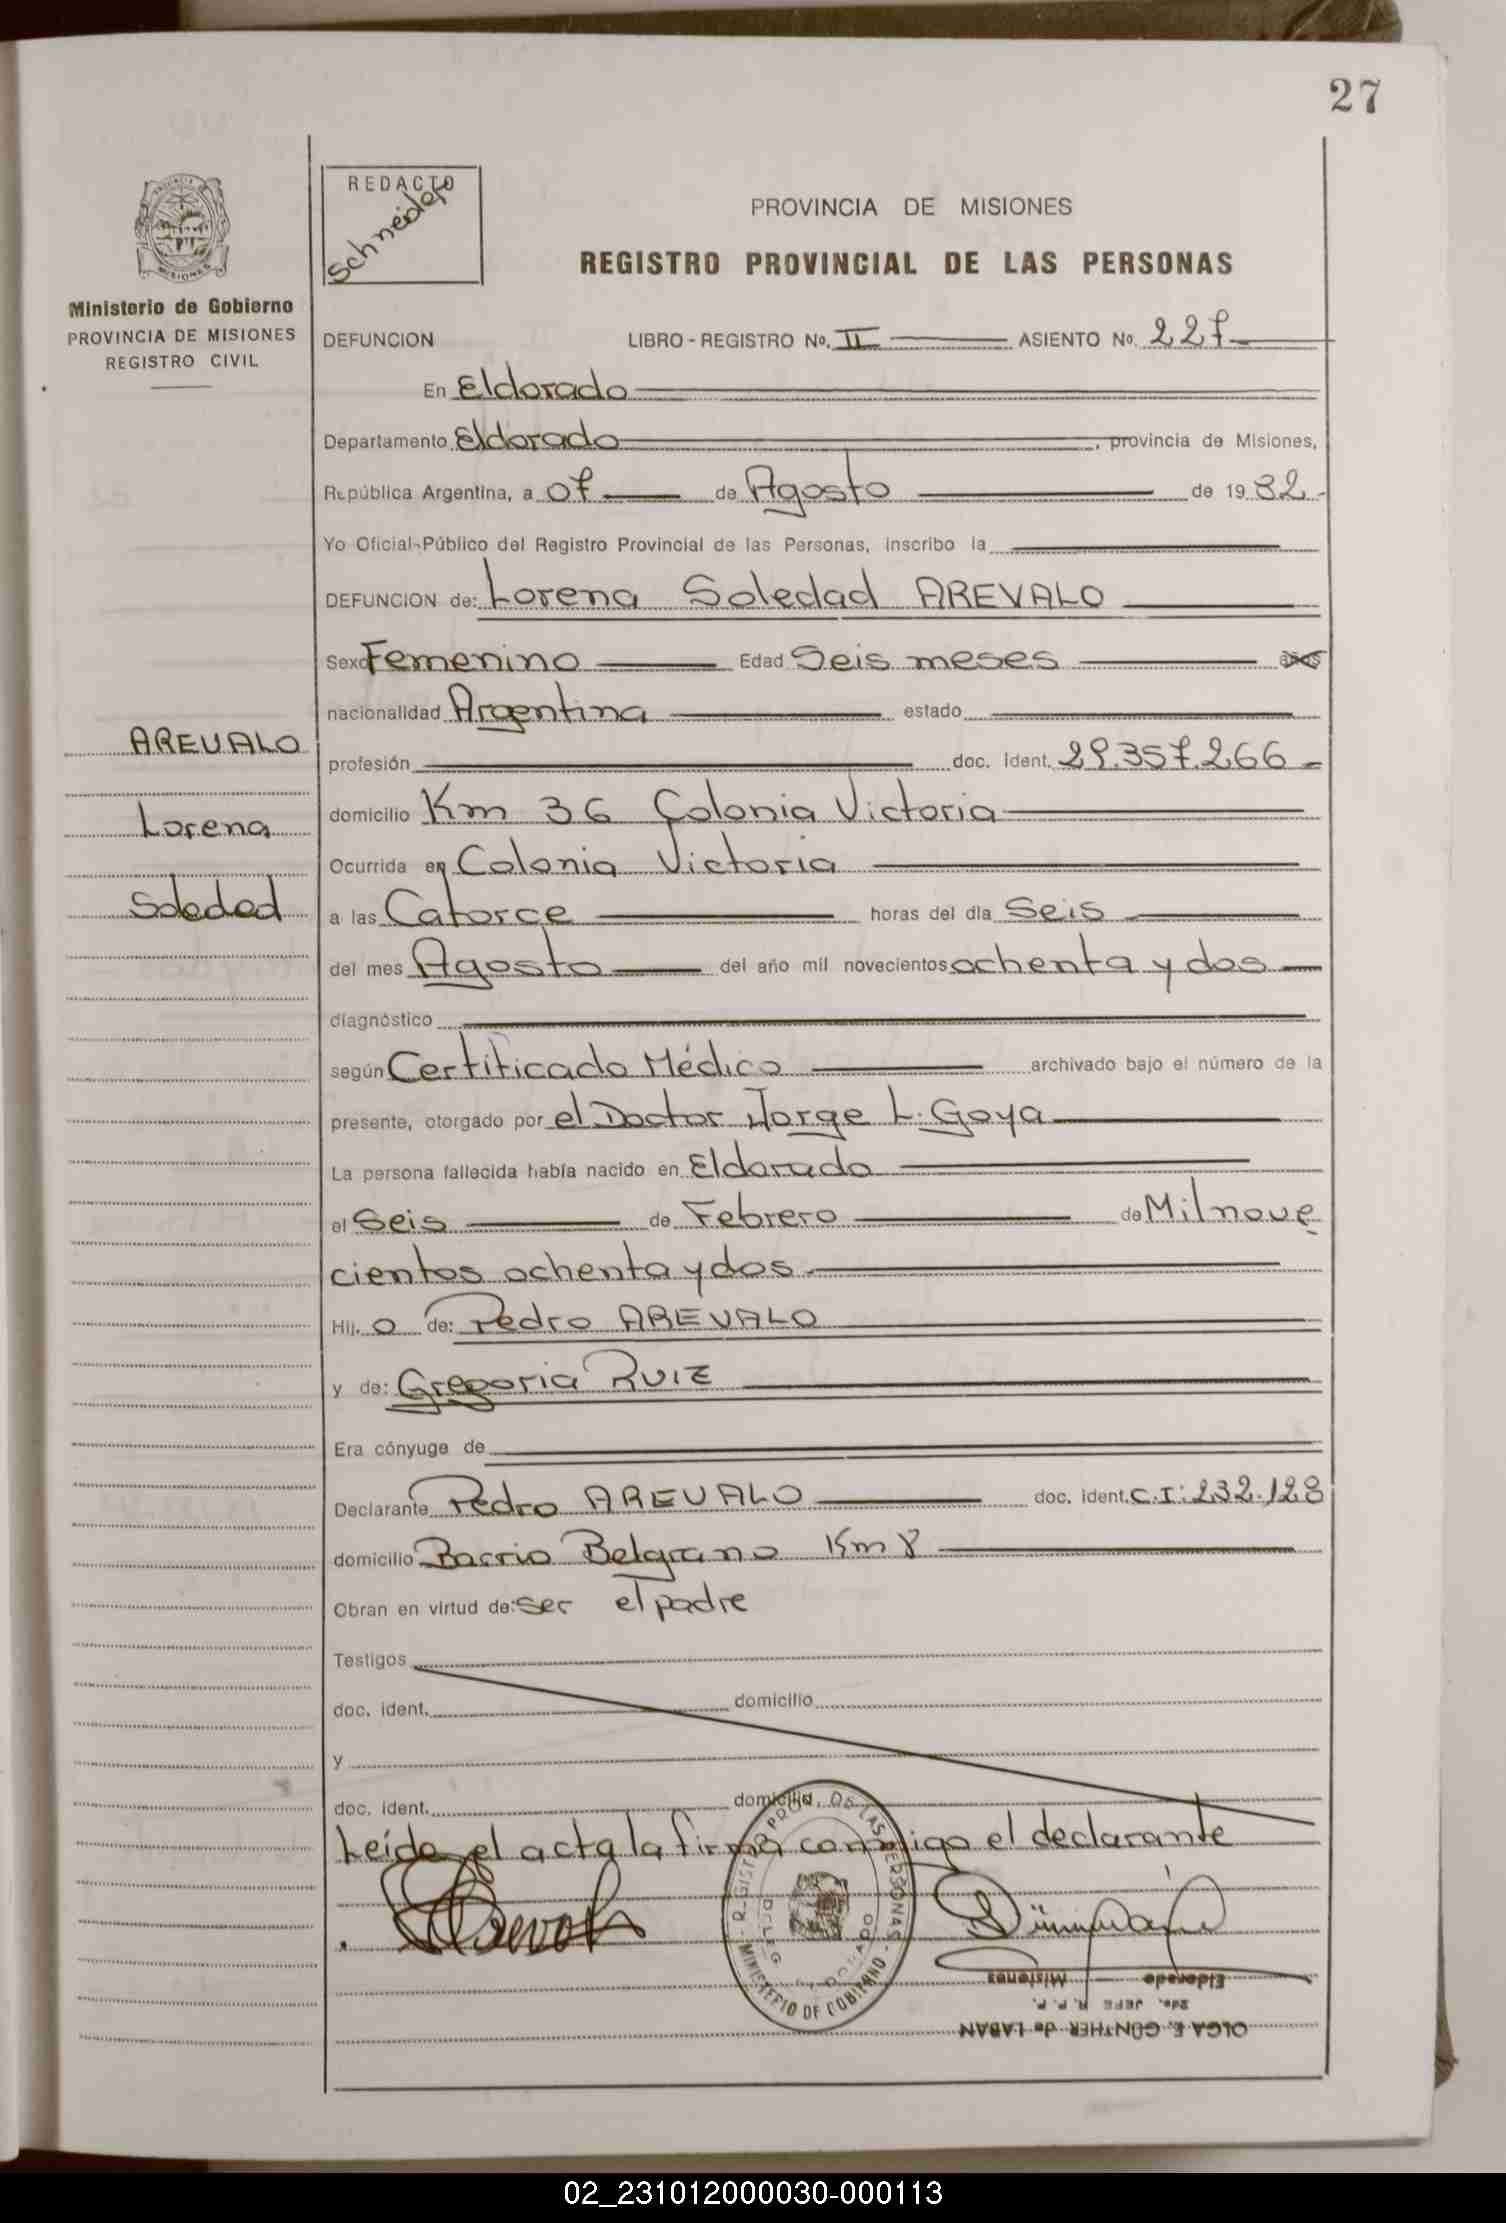 27
REDACTO
Schneider
PROVINCIA DE MISIONES
REGISTRO PROVINCIAL DE LAS PERSONAS
Ministerio de Gobierno
PROVINCIA DE MISIONES
REGISTRO CIVIL
DEFUNCION LIBRO - REGISTRO No. II ASIENTO No. 227
En Eldorado
Departamento Eldorado, provincia de Misiones,
República Argentina, a 07 de Agosto de 19 82
Yo Oficial Público del Registro Provincial de las Personas, inscribo la
DEFUNCION de: Lorena Soledad AREVALO
Sexo Femenino Edad Seis meses años
nacionalidad Argentina estado
AREVALO
profesión doc. ident. 29.357.266
Lorena
domicilio Km 36 Colonia Victoria
Ocurrida en Colonia Victoria
Soledad
a las Catorce horas del día Seis
del mes Agosto del año mil novecientos ochenta y dos
diagnóstico
según Certificado Médico archivado bajo el número de la
presente, otorgado por el Doctor Jorge L. Goya
La persona fallecida había nacido en Eldorado
el Seis de Febrero de Milnove
cientos ochenta y dos
Hij. o de: Pedro AREVALO
y de: Gregoria RUIZ
Era cónyuge de
Declarante Pedro AREVALO doc. ident. C.I: 232.128
domicilio Barrio Belgrano Km 8
Obran en virtud de: ser el padre
Testigos
doc. ident. domicilio
y
doc. ident. domicilio
Leída el acta la firma conmigo el declarante
REGISTRO PROV. DE LAS PERSONAS
MINISTERIO DE GOBIERNO
Eldorado Misiones
2do. JEFE R. P. P.
OLGA E. GUNTHER de LABAN
02_231012000030-000113